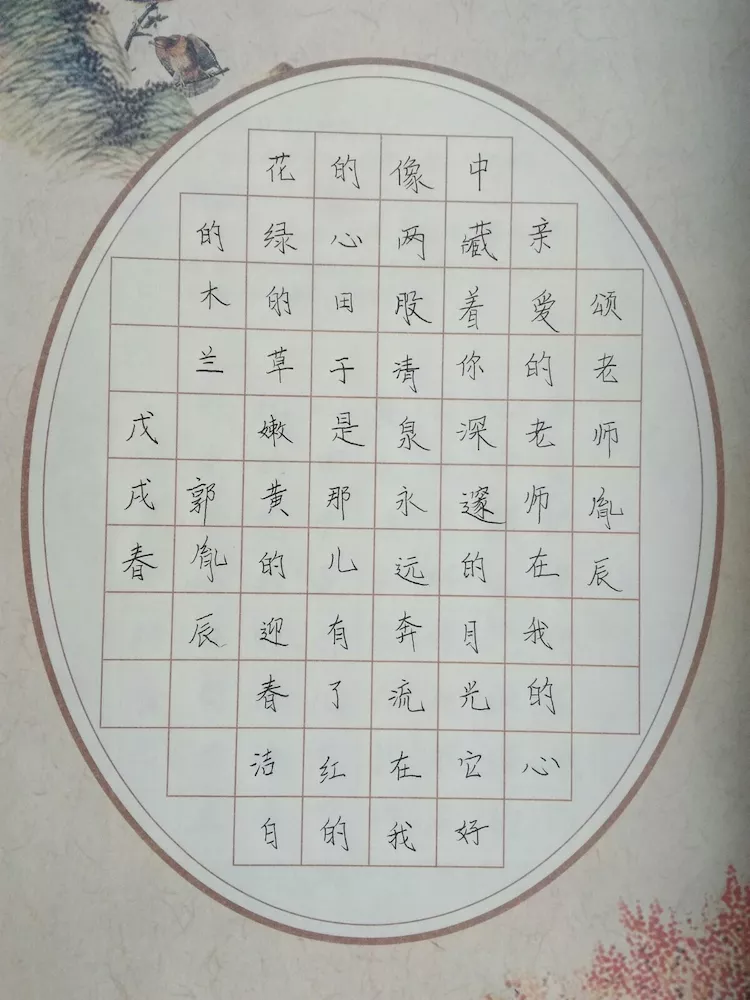 颂老师胤辰
亲爱的老师在我的心
中藏着你深邃的目光它好
像两股清泉永远奔流在我
的心田于是那儿有了红的
花绿的草嫩黄的迎春洁白
的木兰 郭胤辰
戊戌春